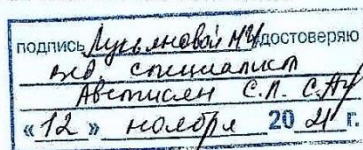 подпись Лукьяновой М.И. удостоверяю
вед. специалист
Аветисян С.Л.
«12» ноября 2021 г.